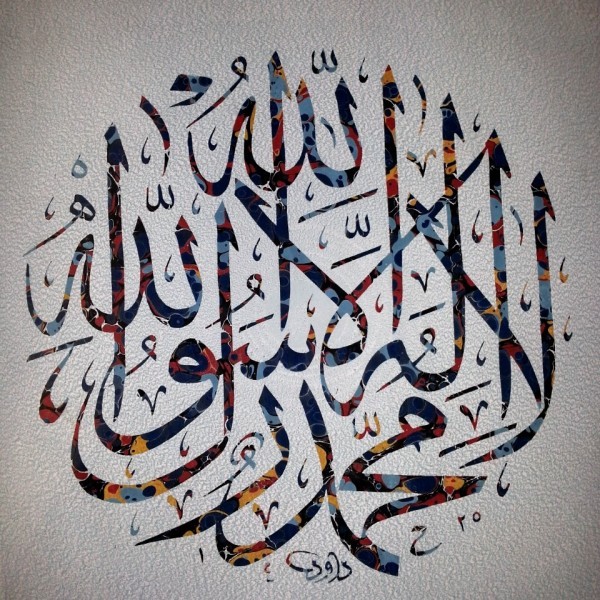 لا إله إلا الله
محمد رسول الله
داود